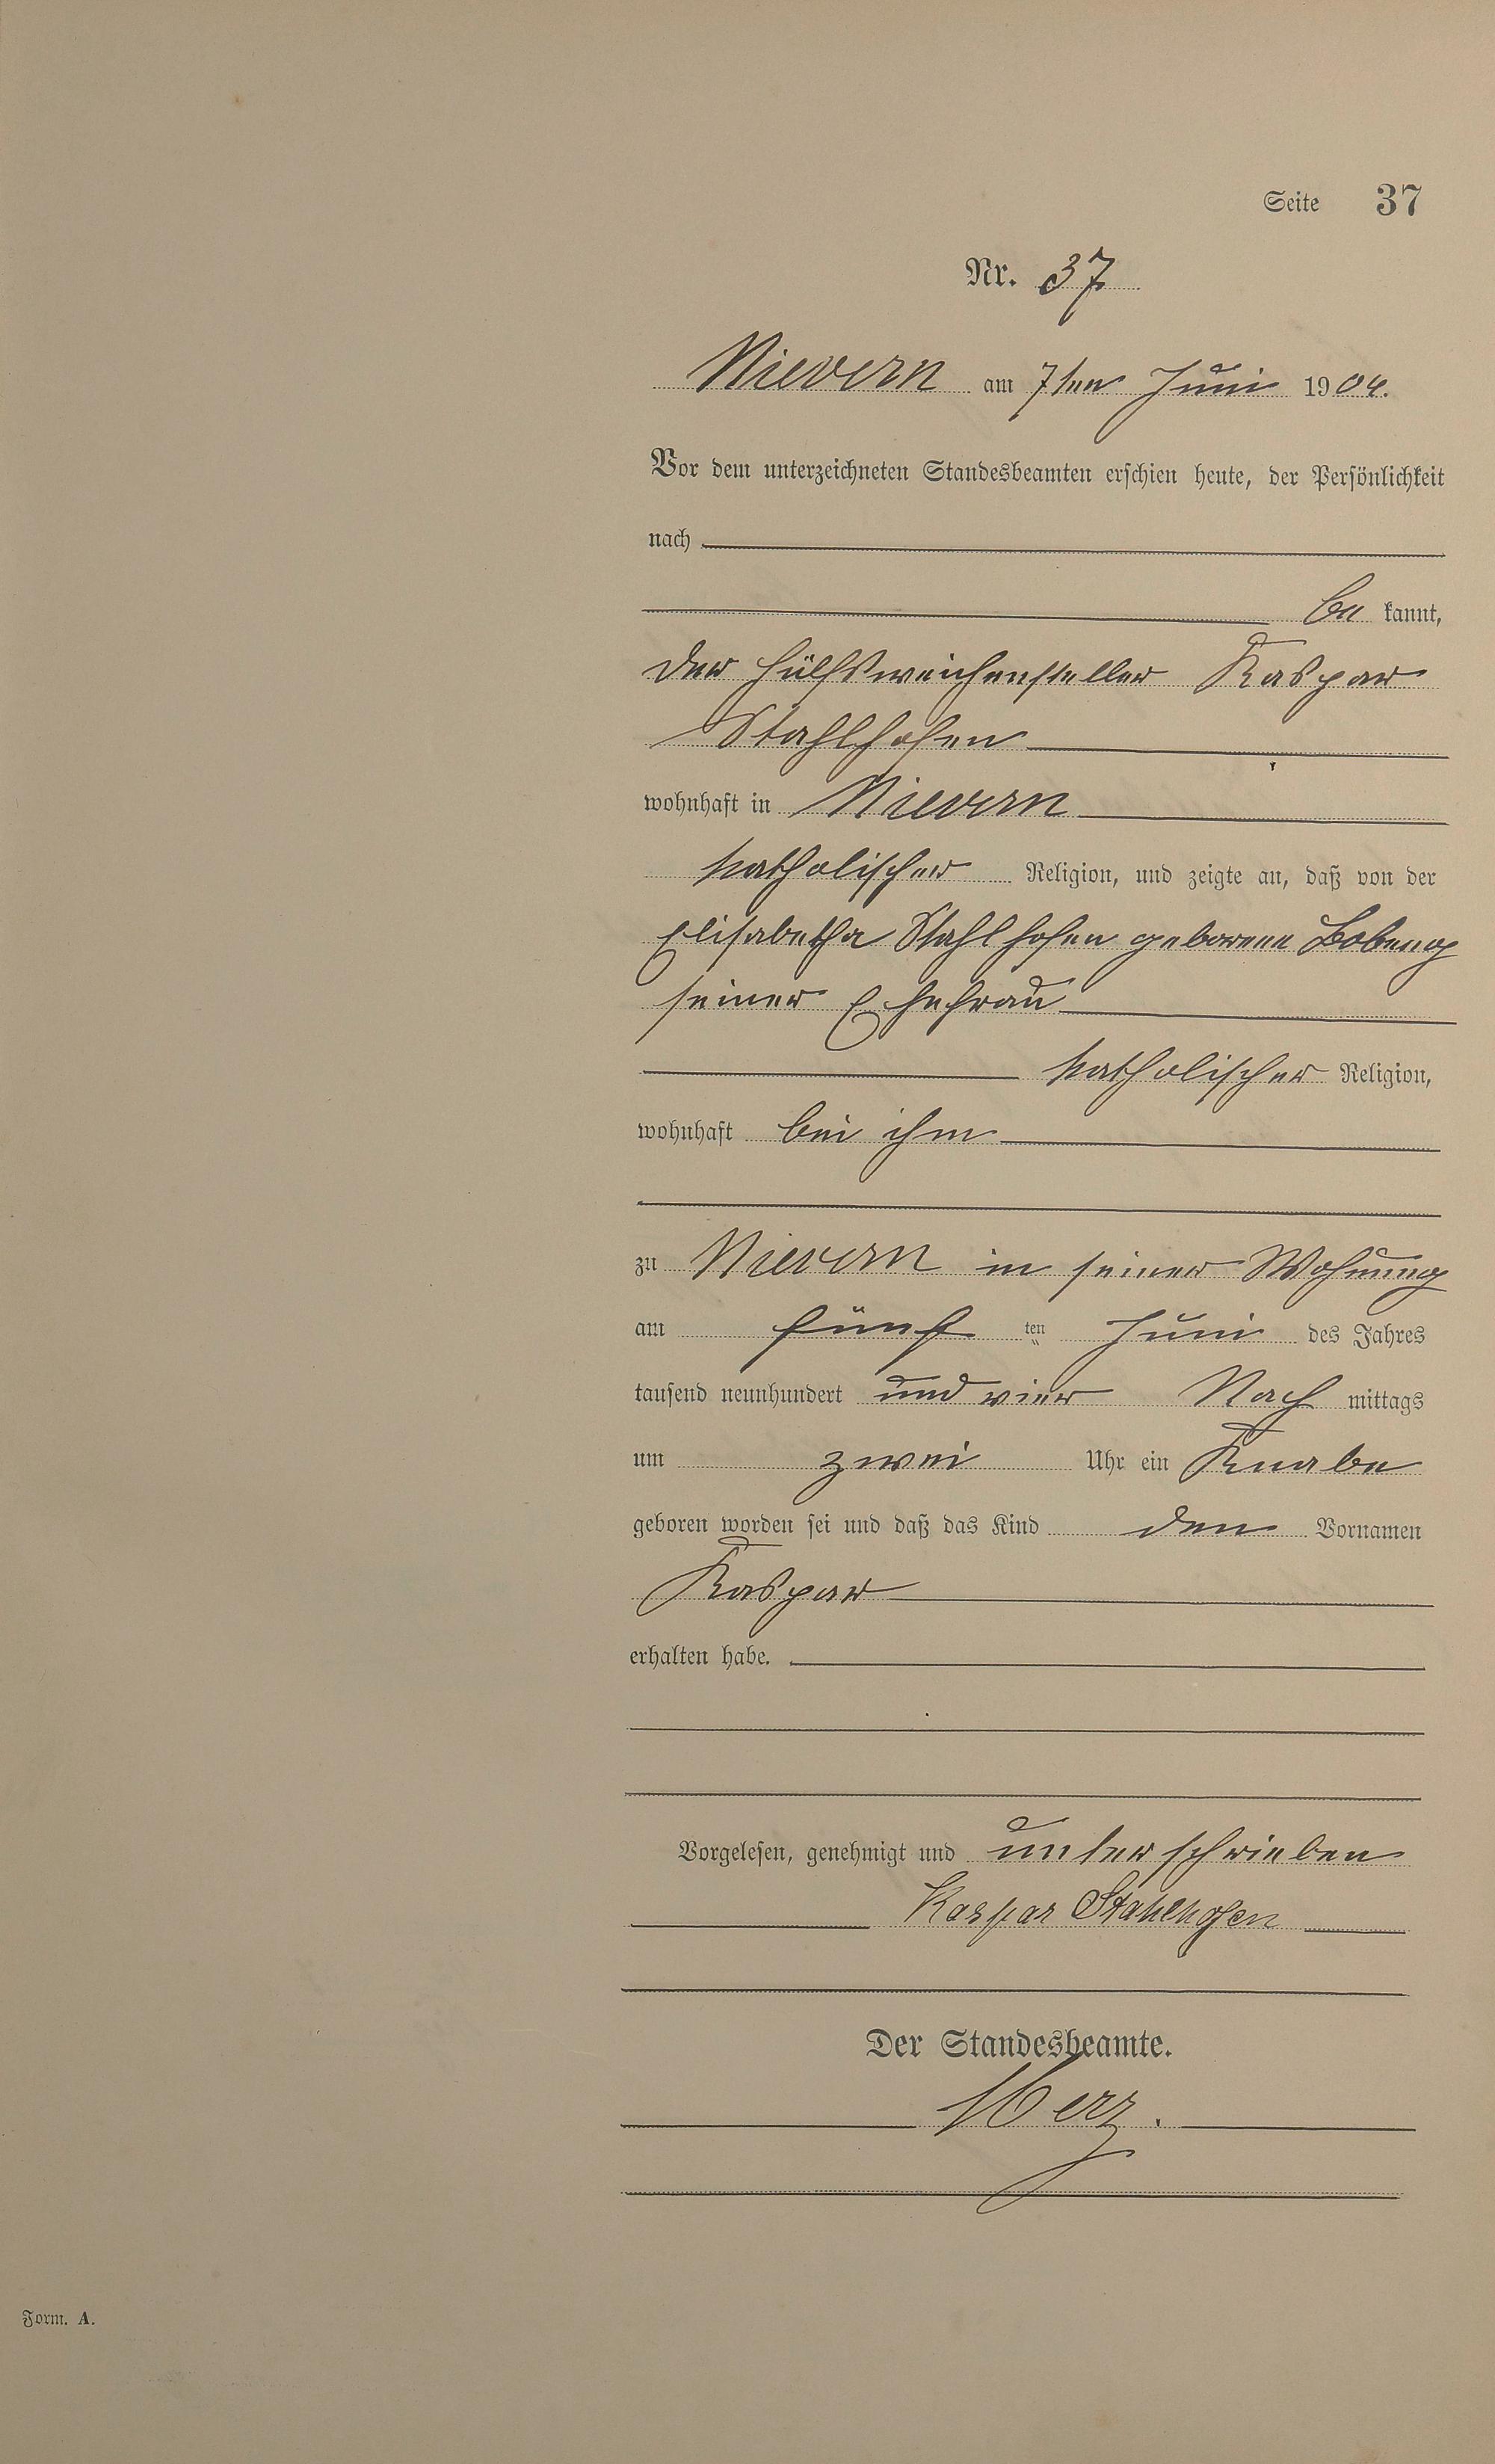 Seite 37
Nr. 37
Nievern am 7ten Juni 1904.
Vor dem unterzeichneten Standesbeamten erschien heute, der Persönlichkeit
nach
be kannt,
der Hülfsweichensteller Kaspar
Stahlhofen
wohnhaft in Nievern
katholischer Religion, und zeigte an, daß von der
Elisabetha Stahlhofen geborene Bobeng
seiner Ehefrau
katholischer Religion,
wohnhaft bei ihm
zu Nievern in seiner Wohnung
am fünf ten Juni des Jahres
tausend neunhundert und vier Nach mittags
um zwei Uhr ein Knabe
geboren worden sei und daß das Kind den Vornamen
Kaspar
erhalten habe.
Vorgelesen, genehmigt und unterschrieben
Kaspar Stahlhofen
Der Standesbeamte.
Merz.
Form. A.